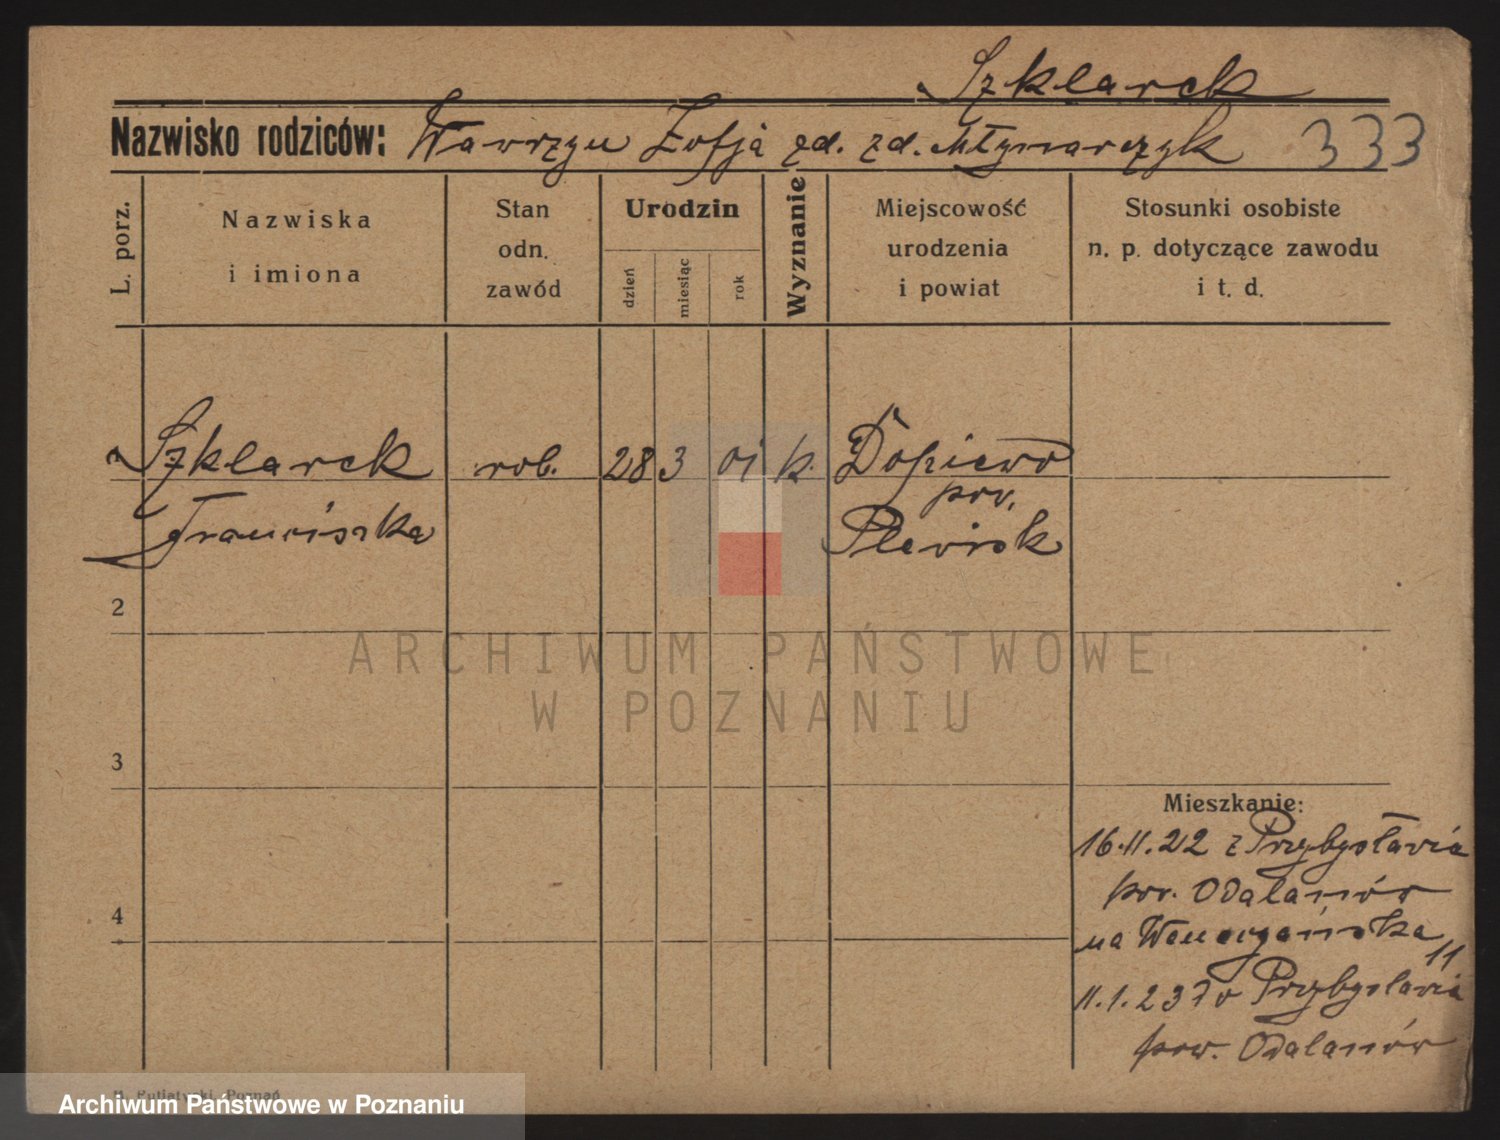 Szklarek
Nazwisko rodziców: Wawrzyn Zofja zd. zd. Młynarczyk 333
L. porz.
Nazwiska
i imiona
Stan
odn.
zawód
Urodzin
dzień
miesiąc
rok
Wyznanie
Miejscowość
urodzenia
i powiat
Stosunki osobiste
n. p. dotyczące zawodu
i t. d.
1 Szklarek rob. 28 3 01 k. Dopiewo
pow.
Franciszka Plewisk
2
ARCHIWUM PAŃSTWOWE
W POZNANIU
3
Mieszkanie:
16.11.22 z Przybysławia
pow. Odalanów
4
na
11
11.1.23 do Przybysławia
pow. Odalanów
Poznań
Archiwum Państwowe w Poznaniu